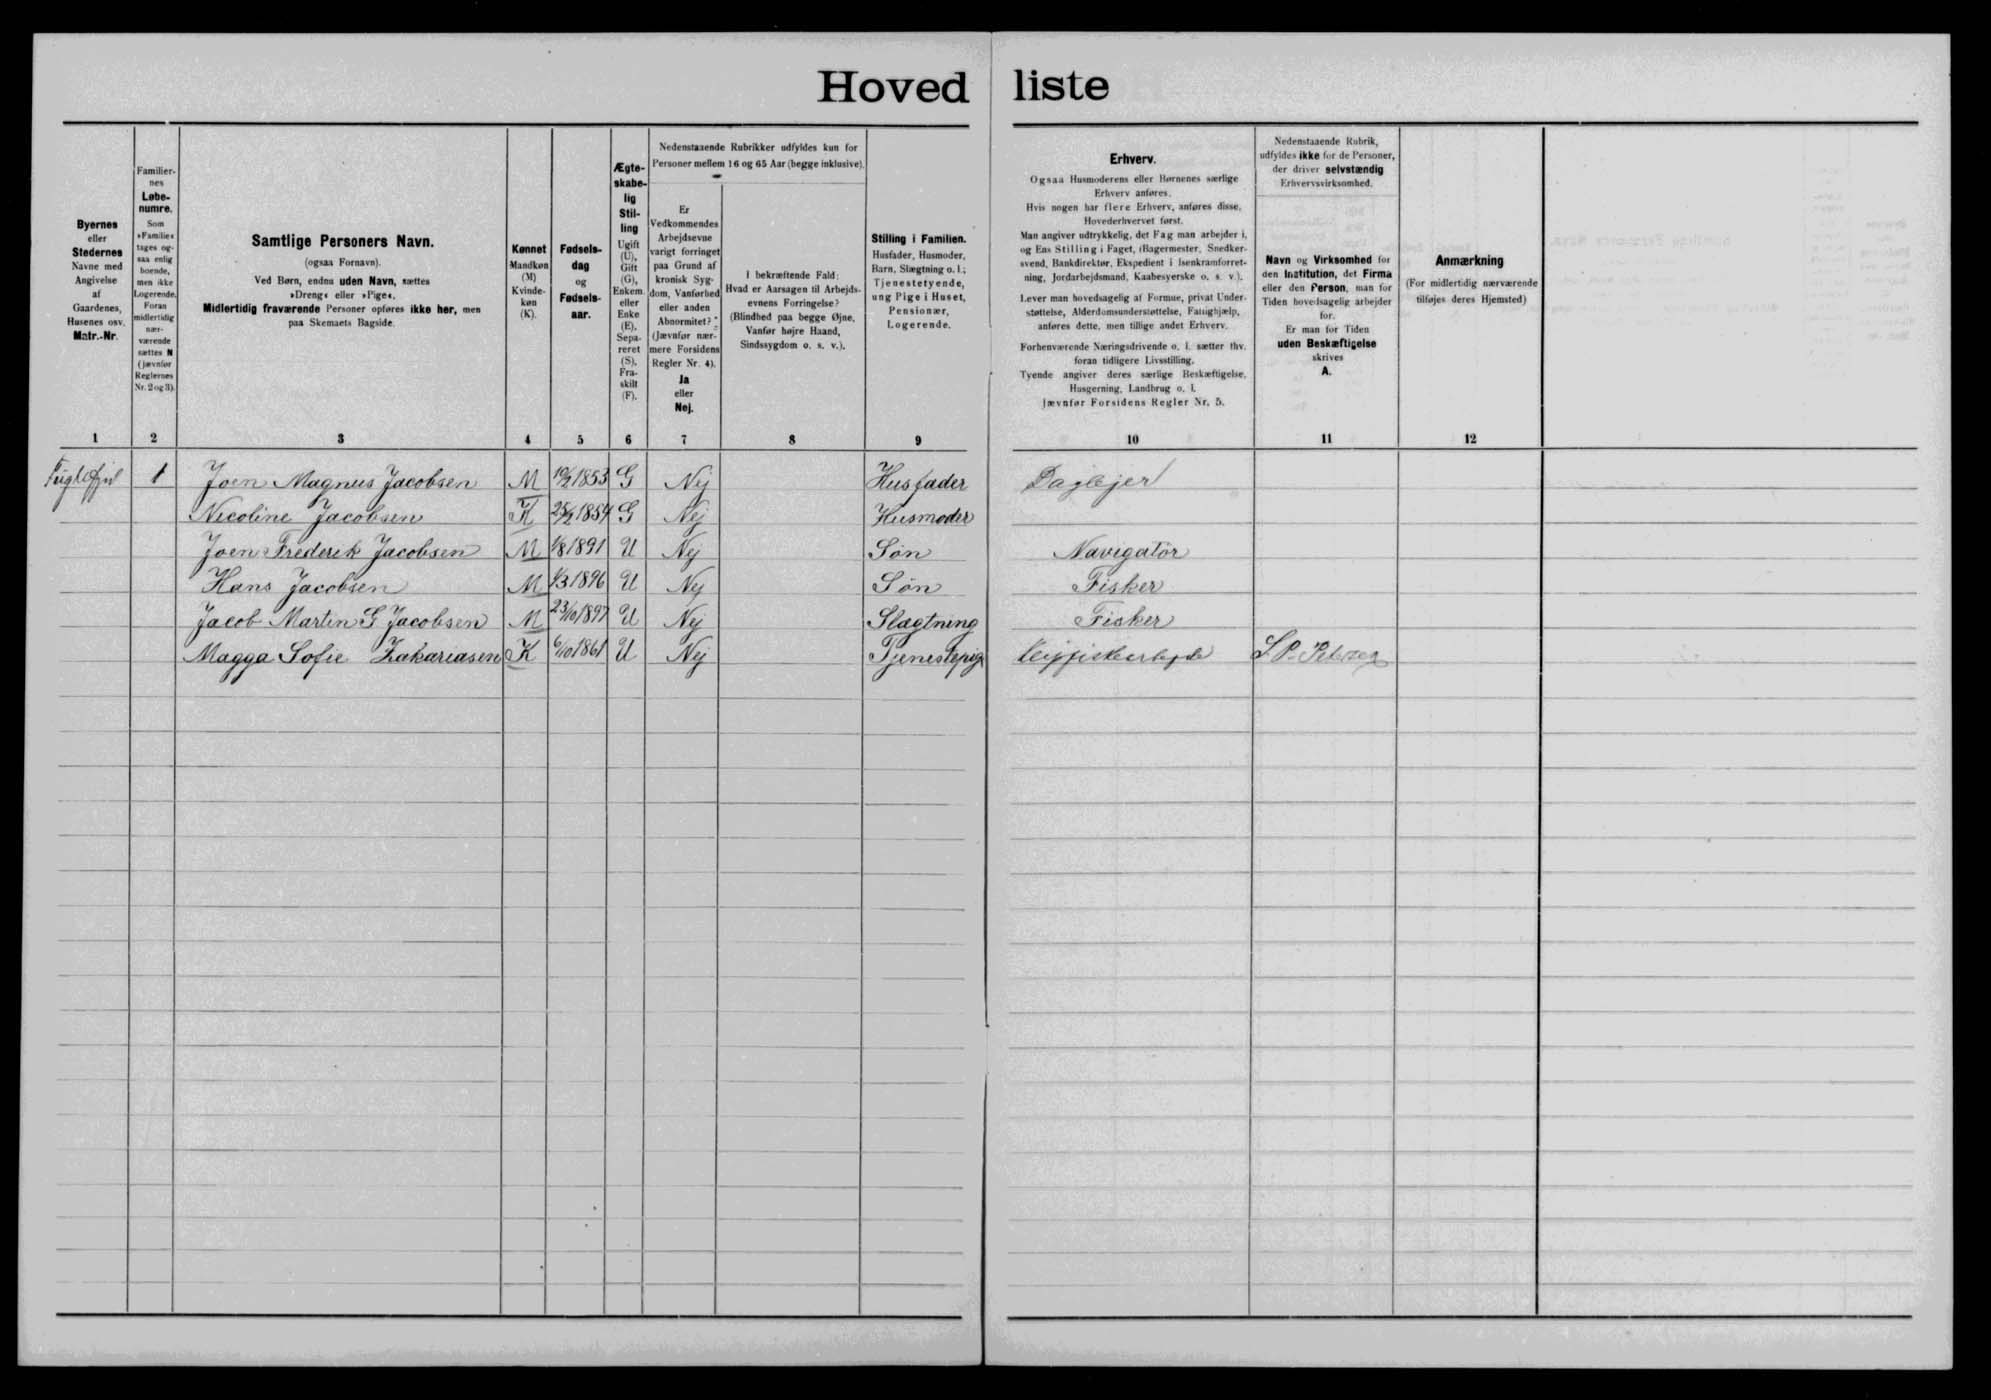 Hoved liste
Byernes
eller
Stedernes
Navne med
Angivelse
af
Gaardenes,
Husenes osv.
Matr.-Nr.
Familier-
nes
Løbe-
numre.
Som
»Familie«
tages og-
saa enlig
boende,
men ikke
Logerende.
Foran
midlertidig
nær-
værende
sættes N
(jævnfør
Reglernes
Nr. 2 og 3).
Samtlige Personers Navn.
(ogsaa Fornavn).
Ved Børn, endnu uden Navn, sættes
»Dreng« eller »Pige«.
Midlertidig fraværende Personer opføres ikke her, men
paa Skemaets Bagside.
Kønnet
Mandkøn
(M)
Kvinde-
køn
(K).
Fødsels-
dag
og
Fødsels-
aar.
Ægte-
skabe-
lig
Stil-
ling
Ugift
(U),
Gift
(G),
Enkem.
eller
Enke
(E),
Sepa-
reret
(S),
Fra-
skilt
(F).
Nedenstaaende Rubrikker udfyldes kun for
Personer mellem 16 og 65 Aar (begge inklusive).
Er
Vedkommendes
Arbejdsevne
varigt forringet
paa Grund af
kronisk Syg-
dom, Vanførhed
eller anden
Abnormitet?
(Jævnfør nær-
mere Forsidens
Regler Nr. 4).
Ja
eller
Nej.
I bekræftende Fald:
Hvad er Aarsagen til Arbejds-
evnens Forringelse?
(Blindhed paa begge Øjne,
Vanfør højre Haand,
Sindssygdom o. s. v.).
Stilling i Familien.
Husfader, Husmoder,
Barn, Slægtning o. l.;
Tjenestetyende,
ung Pige i Huset,
Pensionær,
Logerende.
Erhverv.
Ogsaa Husmoderens eller Børnenes særlige
Erhverv anføres.
Hvis nogen har flere Erhverv, anføres disse,
Hovederhvervet først.
Man angiver udtrykkelig, det Fag man arbejder i,
og Ens Stilling i Faget, (Bagermester, Snedker-
svend, Bankdirektør, Ekspedient i Isenkramforret-
ning, Jordarbejdsmand, Kaabesyerske o. s. v.).
Lever man hovedsagelig af Formue, privat Under-
støttelse, Alderdomsunderstøttelse, Fattighjælp,
anføres dette, men tillige andet Erhverv.
Forhenværende Næringsdrivende o. l. sætter fhv.
foran tidligere Livsstilling.
Tyende angiver deres særlige Beskæftigelse,
Husgerning, Landbrug o. l.
Jævnfør Forsidens Regler Nr. 5.
Nedenstaaende Rubrik,
udfyldes ikke for de Personer,
der driver selvstændig
Erhvervsvirksomhed.
Navn og Virksomhed for
den Institution, det Firma
eller den Person, man for
Tiden hovedsagelig arbejder
for.
Er man for Tiden
uden Beskæftigelse
skrives
A.
Anmærkning
(For midlertidig nærværende
tilføjes deres Hjemsted)
1 2 3 4 5 6 7 8 9 10 11 12
1 Joen Magnus Jacobsen M 1853 G Nej Husfader Daglejer
Nicoline Jacobsen K 25/2 1854 G Nej Husmoder
Joen Frederik Jacobsen M 1/8 1891 U Nej Søn Navigatör
Hans Jacobsen M 1/3 1896 U Nej Søn Fisker
Jacob Martin G Jacobsen M 23/10 1897 U Nej Slægtning Fisker
Magga Sofie Zakariasen K 6/10 1861 U Nej Tjenestepige S. P. Petersen